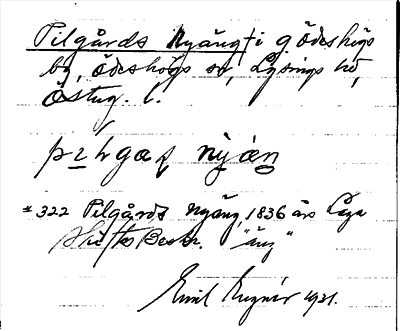 Pilgårds Nyäng ti g Ödeshögs
by, Ödeshögs sn, Lysings hd,
Östug. l.
nyän
322 Pilgårds Nyäng, 1836 års Laga
Skiftes Beskr. "äng"
Emil 1931.